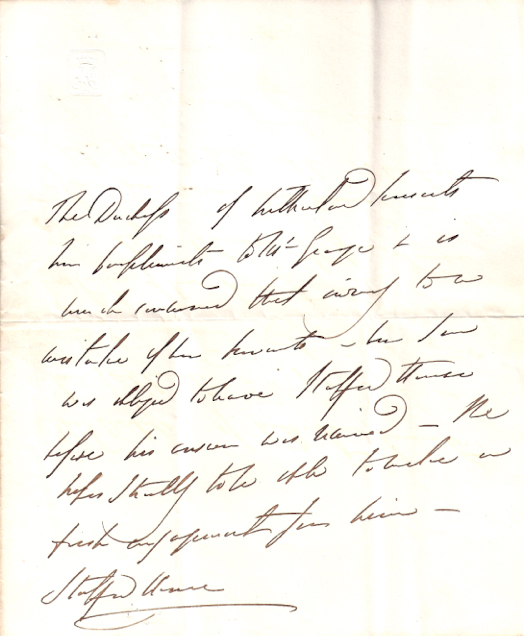 The Duchess of Sutherland presents
her compliments to Mr George & is
much concerned that owing to a
mistake of her servants – her son
was obliged to leave Stafford House
before his answer was received – She
hopes to be able to make a
fresh engagement for him –
Stafford House